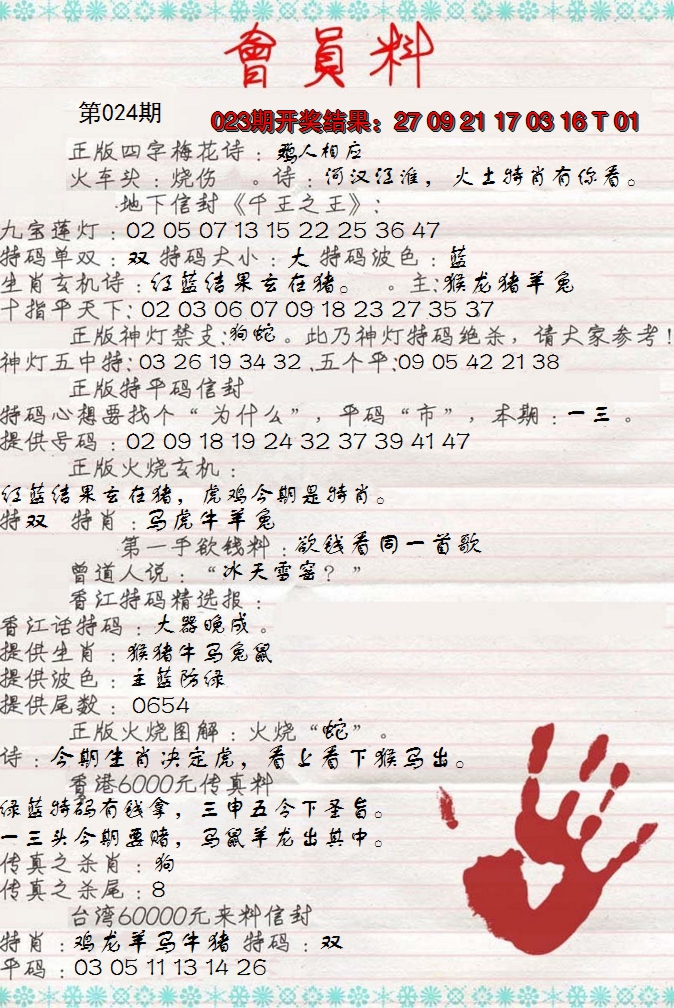 會員料
第024期
023期开奖结果：27 09 21 17 03 16 T 01
正版四字梅花诗：鸡人相应
火车头：烧伤 。诗：河汉江淮，火土特肖有你看。
地下信封《千王之王》:
九宝莲灯：02 05 07 13 15 22 25 36 47
特码单双：双 特码大小：大 特码波色：蓝
生肖玄机诗：红蓝结果玄在猪。 。主:猴龙猪羊兔
十指平天下: 02 03 06 07 09 18 23 27 35 37
正版神灯禁支:狗蛇。此乃神灯特码绝杀，请大家参考!
神灯五中特: 03 26 19 34 32 .五个平:09 05 42 21 38
正版特平码信封
特码心想要找个“为什么”，平码“市”，本期：一三 。
提供号码：02 09 18 19 24 32 37 39 41 47
正版火烧玄机：
红蓝结果玄在猪，虎鸡今期是特肖。
特双 特肖：马虎牛羊兔
第一手欲钱料：欲钱看同一首歌
曾道人说：“冰天雪窑？”
香江特码精选报：
香江话特码：大器晚成。
提供生肖：猴猪牛马兔鼠
提供波色：主蓝防绿
提供尾数：0654
正版火烧图解：火烧“蛇”。
诗：今期生肖决定虎，看上看下猴马出。
香港6000元传真料
绿蓝特码有钱拿，三申五令下圣旨。
一三头今期要赌，马鼠羊龙出其中。
传真之杀肖：狗
传真之杀尾：8
台湾60000元来料信封
特肖：鸡龙羊马牛猪 特码：双
平码：03 05 11 13 14 26